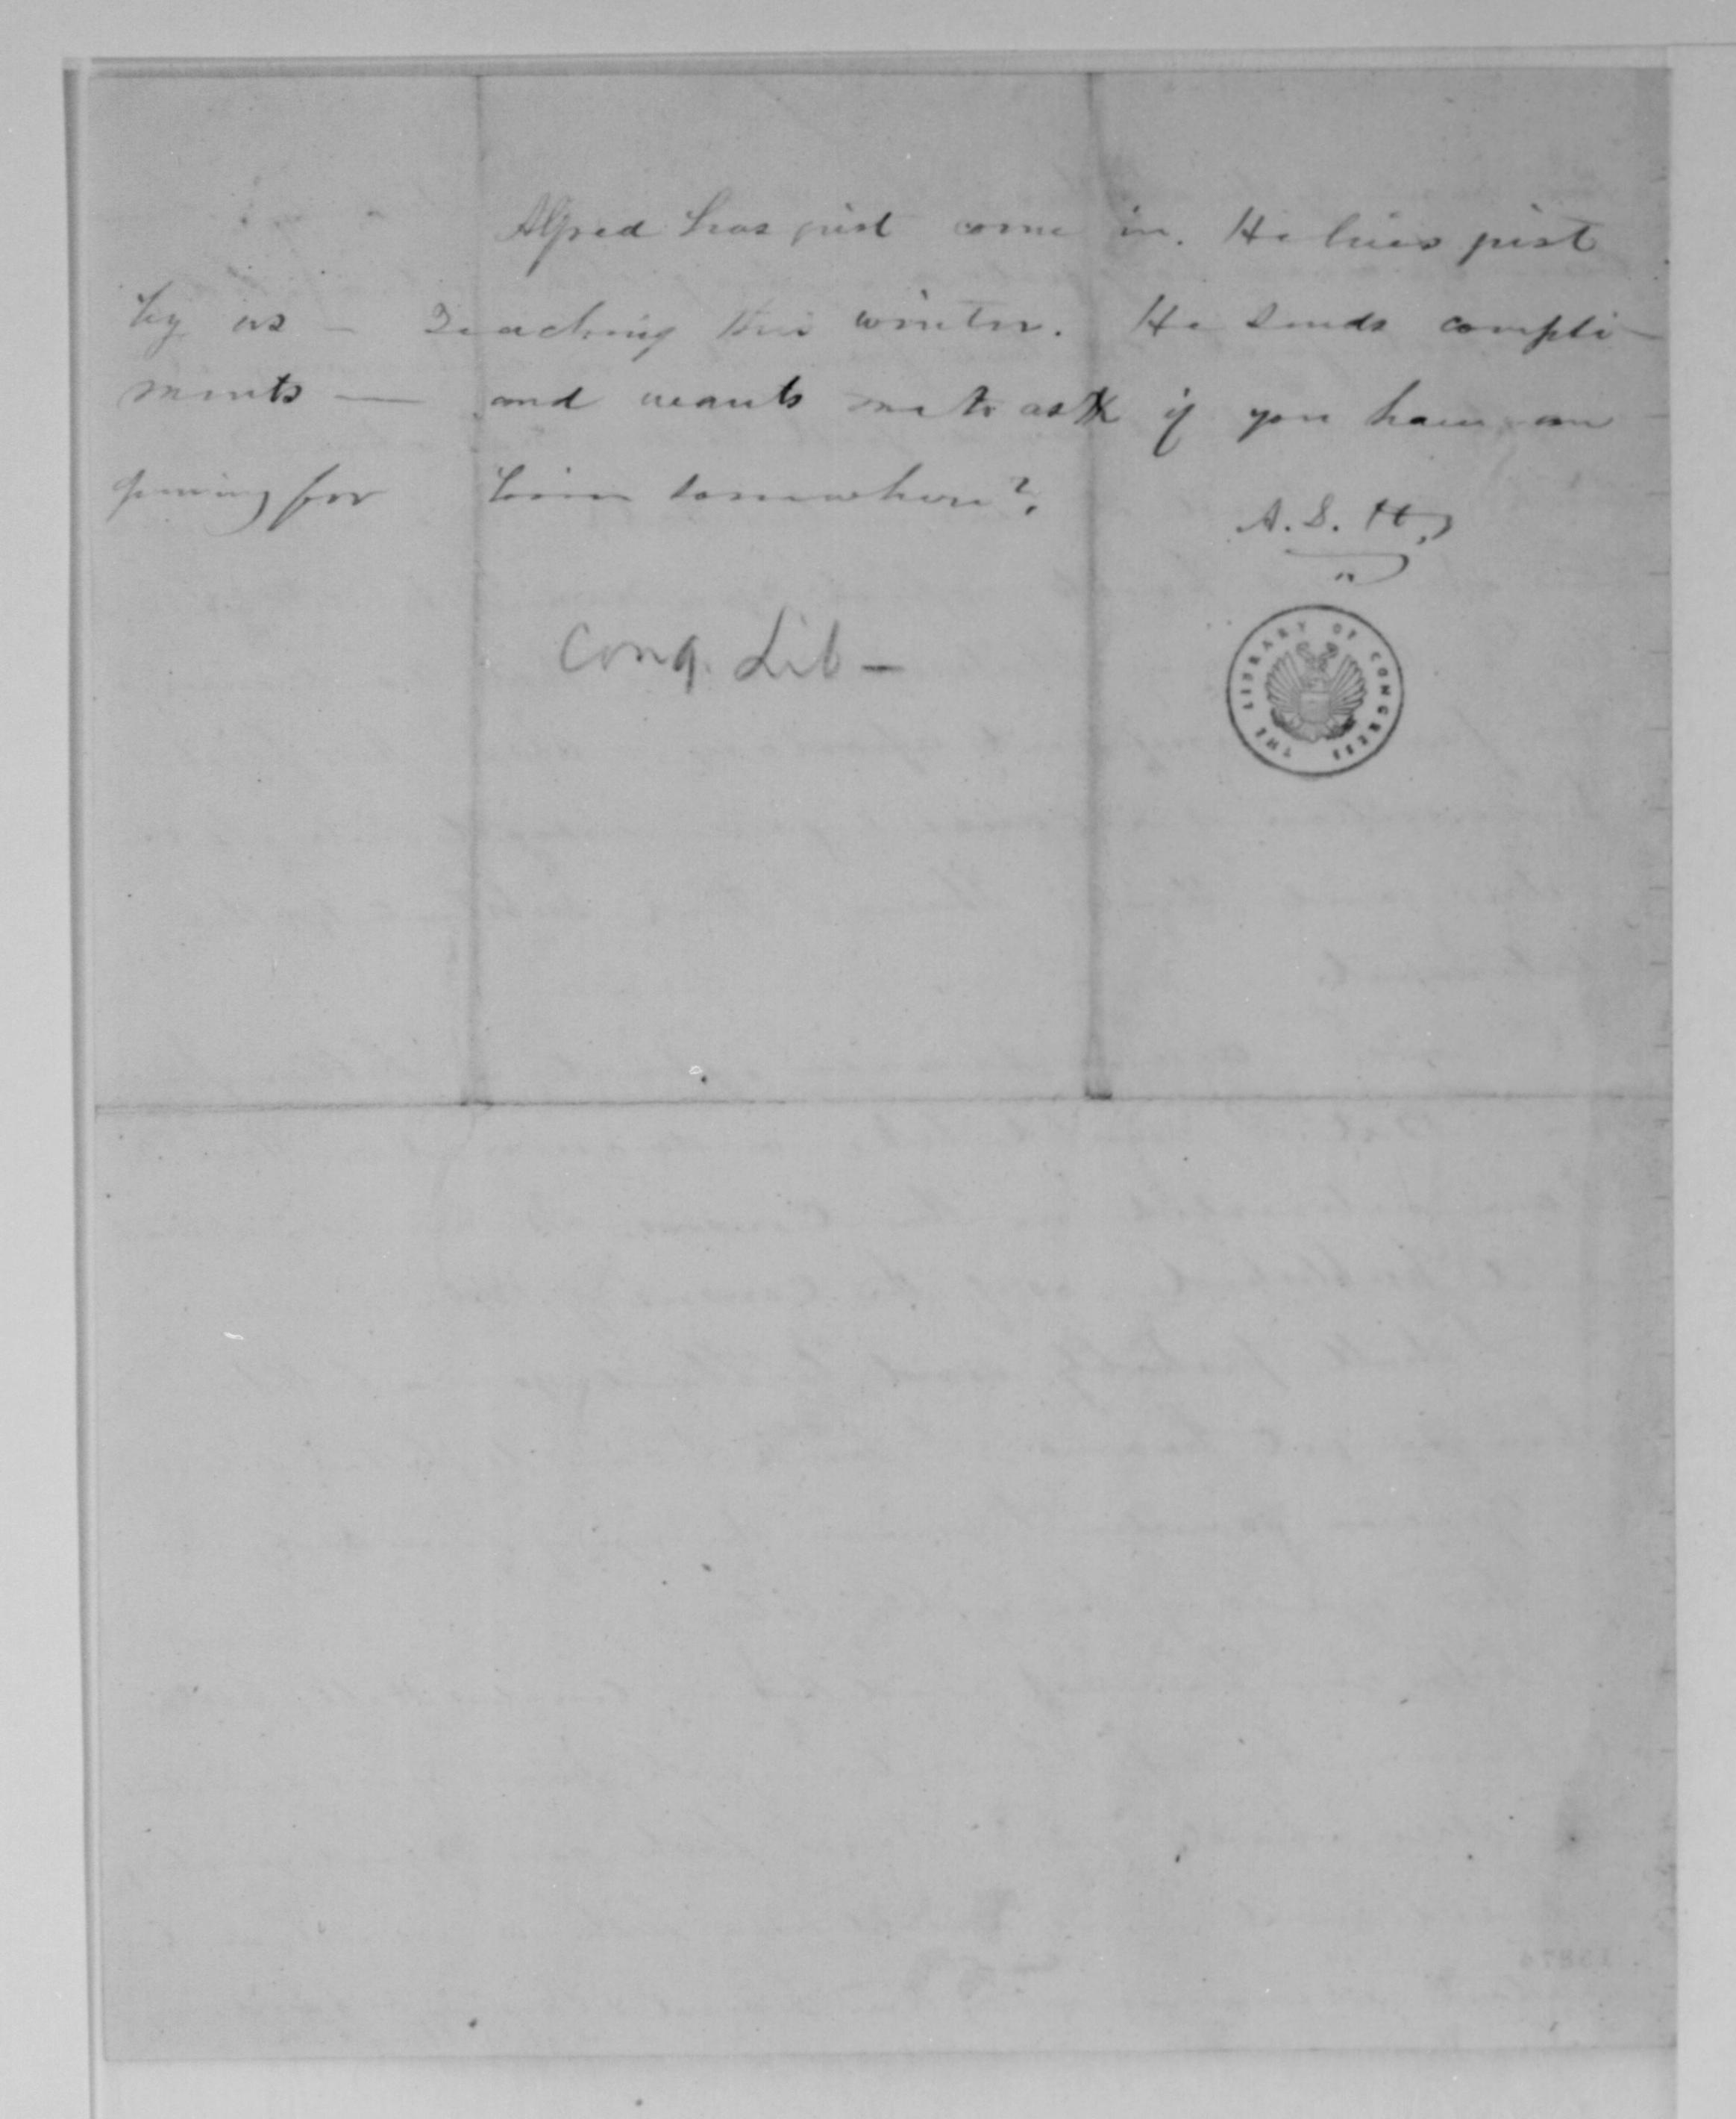 Alfred has just come in. He lives just
by us — Teaching this winter. He sends compli-
ments — and wants me to ask if you have an
opening for him somewhere?
A. S. H.
Cong. Lib —
THE LIBRARY OF CONGRESS